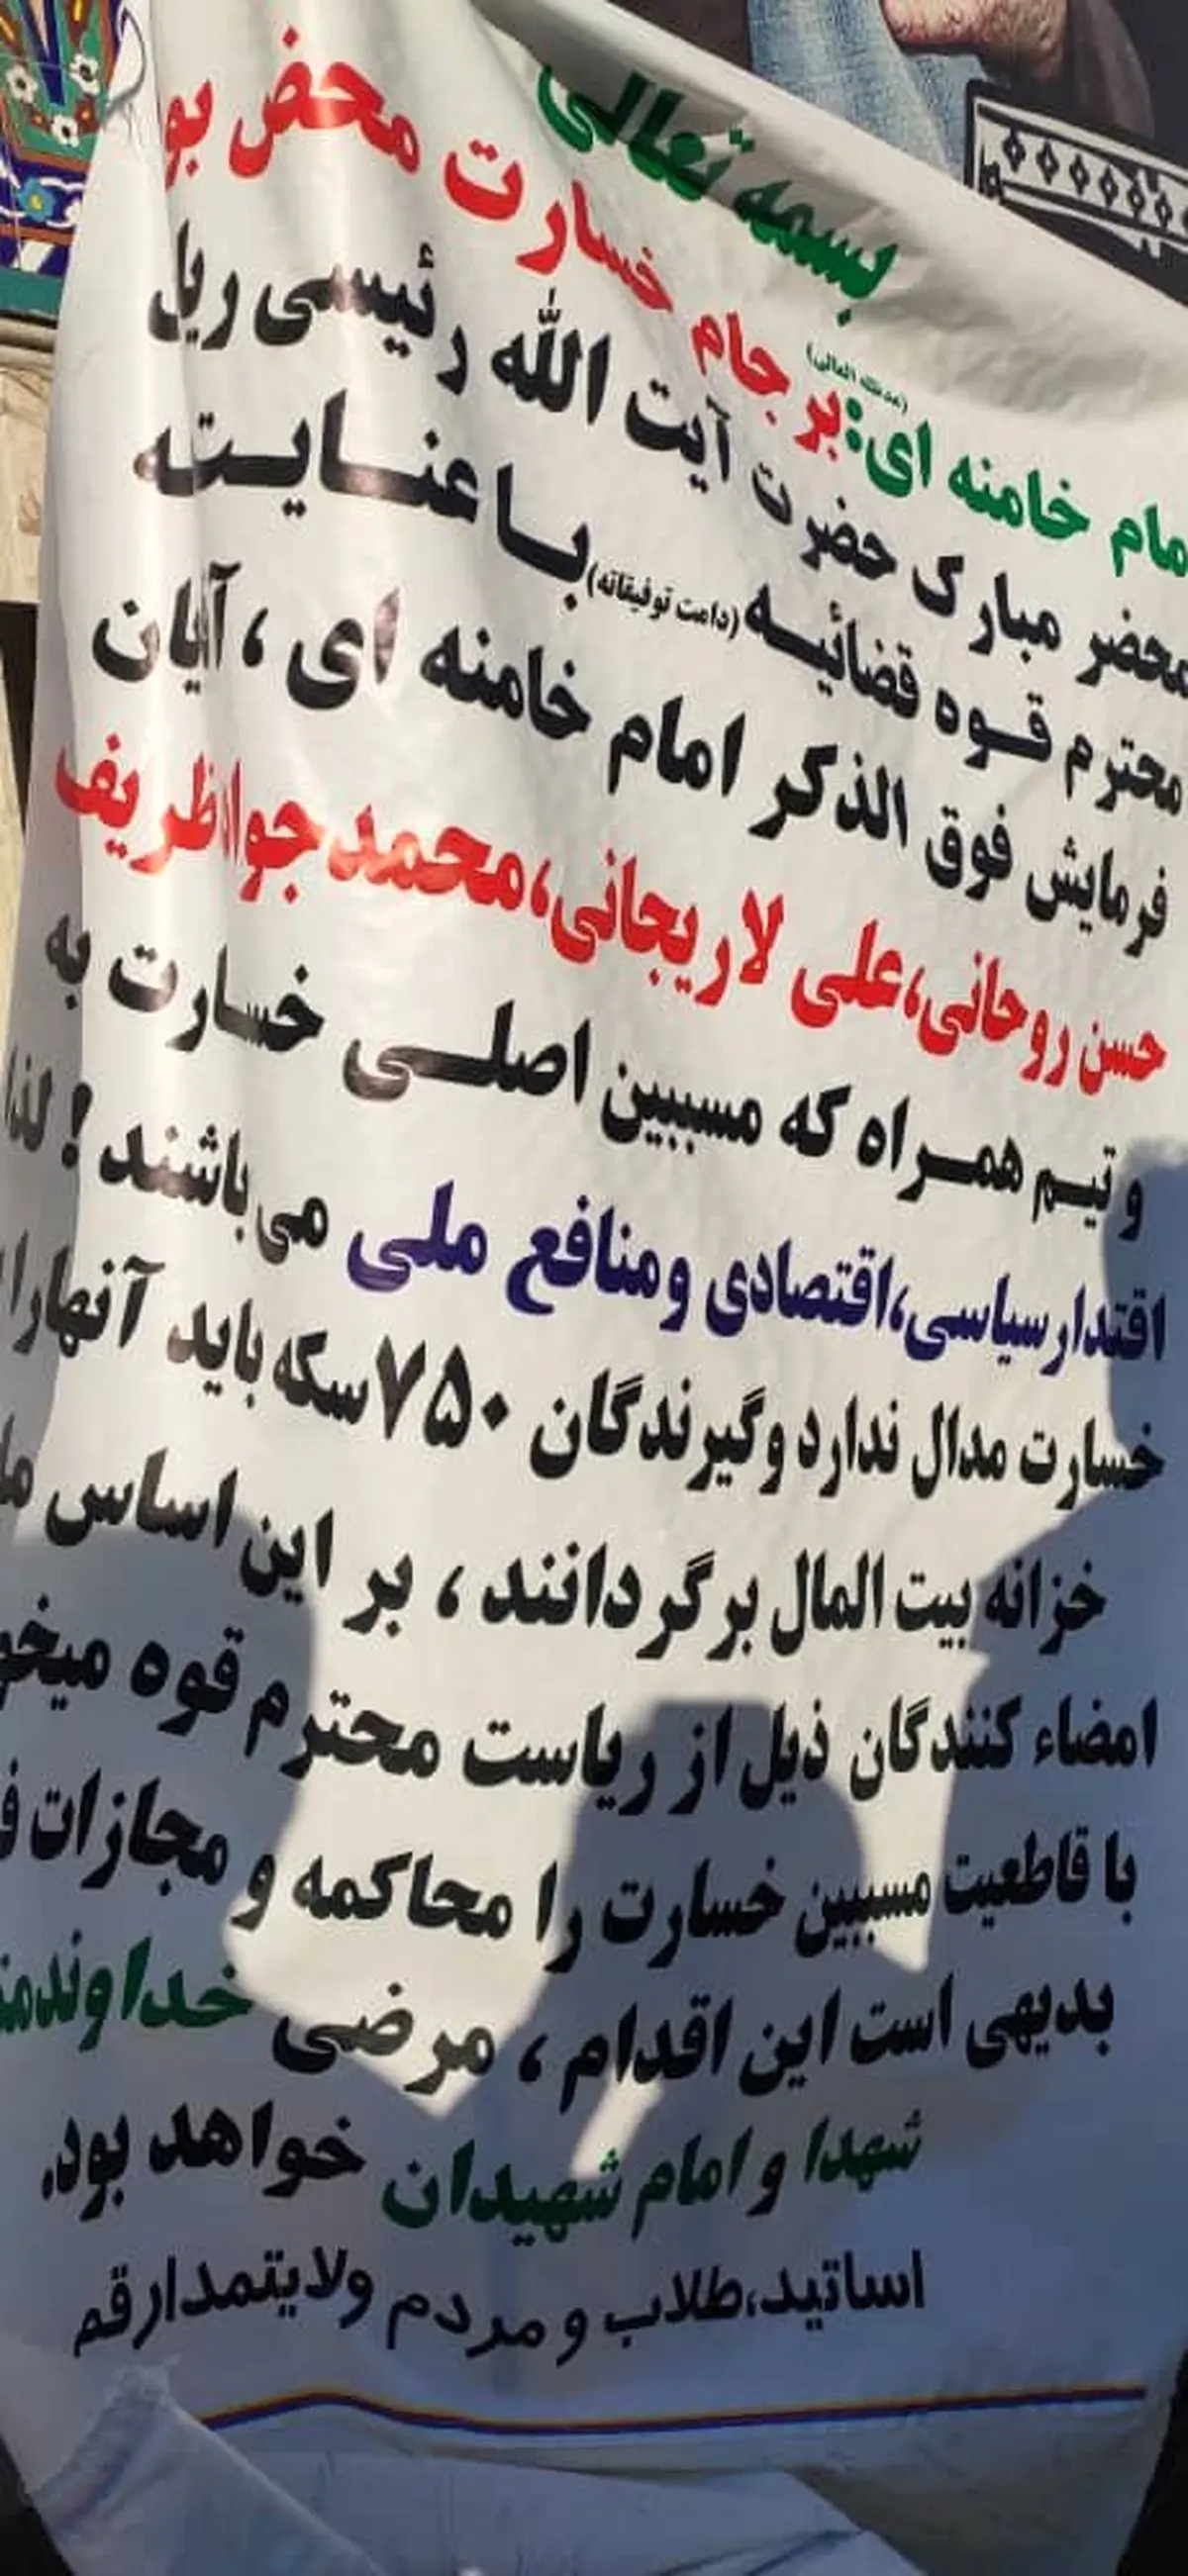 بسمه تعالی
مام خامنه ای: (مدظله العالی) برجام خسارت محض بو
محضر مبارک حضرت آیت الله رئیسی ریا
محترم قوه قضائیه (دامت توفیقاته) باعنایته
فرمایش فوق الذکر امام خامنه ای، آیان
حسن روحانی، علی لاریجانی، محمد جواد ظریف
و تیم همراه که مسببین اصلی خسارت به
اقتدار سیاسی، اقتصادی ومنافع ملی می‌باشند! لذا
خسارت مدال ندارد وگیرندگان ۷۵۰ سکه باید آنهارا
خزانه بیت المال برگردانند، بر این اساس ما
امضاء کنندگان ذیل از ریاست محترم قوه میخو
با قاطعیت مسببین خسارت را محاکمه و مجازات ف
بدیهی است این اقدام، مرضی خداوندمن
شهدا و امام شهیدان خواهد بود.
اساتید،طلاب و مردم ولایتمدارقم